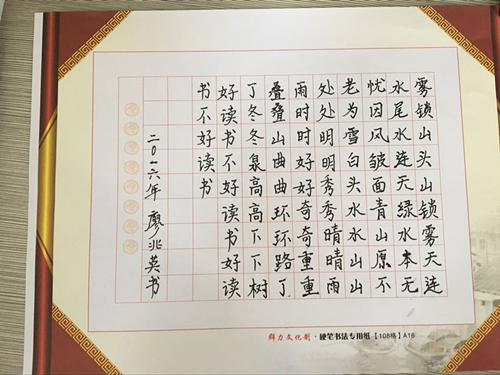 雾锁山头山锁雾天连
水尾水连天绿水本无
忧因风皱面青山原不
老为雪白头水水山山
处处明明秀秀晴晴雨
雨时时好好奇奇重重
叠叠山曲曲环环路丁
丁冬冬泉高高下下树
好读书不好读书好读
书不好读书
二〇一六年 廖兆英书
群力文化制·硬笔书法专用纸【108格】A16